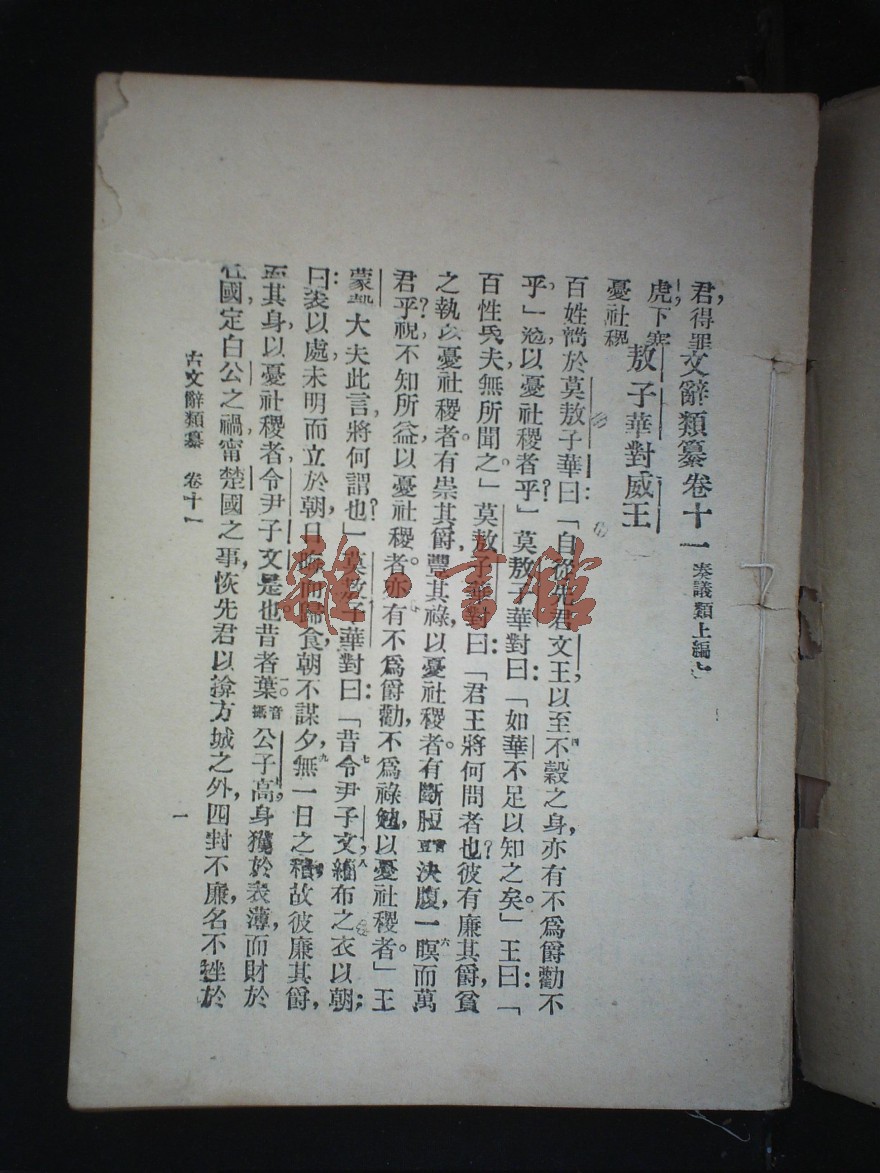 君得罪
文辭類纂卷十一 奏議類上編
虎下
敖子華對威王
憂社稷
百姓 於莫敖子華曰：「自從先君文王以至不穀之身，亦有不爲爵勸，不
乎」 以憂社稷者乎？」莫敖子華對曰：「如華不足以知之矣。」王曰：「
百姓 夫無所聞之」莫敖子華對曰：「君王將何問者也？彼有廉其爵，貧
之執以憂社稷者。有崇其爵，豐其祿，以憂社稷者。有斷脰決腹，一瞑而萬
君乎？視不知所益，以憂社稷者。亦有不爲爵勸，不爲祿勉，以憂社稷者。」王
蒙 大夫此言，將何謂也？」莫敖子華對曰：「昔令尹子文，緇布之衣以朝；
曰：裘以處，未明而立於朝，日晦而歸食，朝不謀夕，無一日之積，故彼廉其爵，
其身，以憂社稷者，令尹子文是也。昔者葉音攝公子高，身獲於表薄，而財於
國，定白公之禍，甯楚國之事，恢先君以揜方城之外，四封不廉，名不挫於
古文辭類纂 卷十一
一
雜·書館